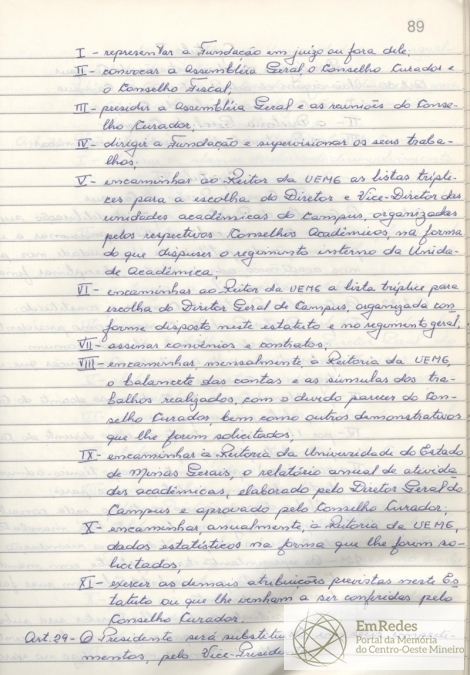 89
I - representar a Fundação em juizo ou fora dele;
II - convocar a Assembléia Geral, o Conselho Curador e
o Conselho Fiscal;
III - presidir a Assembléia Geral e as reuniões do Conse-
lho Curador;
IV - dirigir a Fundação e supervisionar os seus traba-
lhos;
V - encaminhar ao Reitor da UEMG as listas trípli-
ces para a escolha do Diretor e Vice-Diretor das
unidades acadêmicas do Campus, organizadas
pelos respectivos Conselhos Acadêmicos, na forma
do que dispuser o regimento interno da Unida-
de Acadêmica;
VI - encaminhar ao Reitor da UEMG a lista tríplice para
escolha do Diretor Geral de Campus, organizada con-
forme disposto neste estatuto e no regimento geral;
VII - assinar convênios e contratos;
VIII - encaminhar, mensalmente, à Reitoria da UEMG,
o balancete das contas e as súmulas dos tra-
balhos realizados, com o devido parecer do Con-
selho Curador, bem como outros demonstrativos
que lhe forem solicitados;
IX - encaminhar à Reitoria da Universidade do Estado
de Minas Gerais, o relatório anual de ativida-
des acadêmicas, elaborado pelo Diretor Geral do
Campus e aprovado pelo Conselho Curador;
X - encaminhar, anualmente, à Reitoria da UEMG,
dados estatísticos na forma que lhe forem so-
licitados;
XI - exercer as demais atribuições previstas neste Es-
tatuto ou que lhe venham a ser conferidas pelo
Conselho Curador.
Art. 29 - O Presidente será
mentos, pelo Vice-Presiden
EmRedes
Portal da Memória
do Centro-Oeste Mineiro